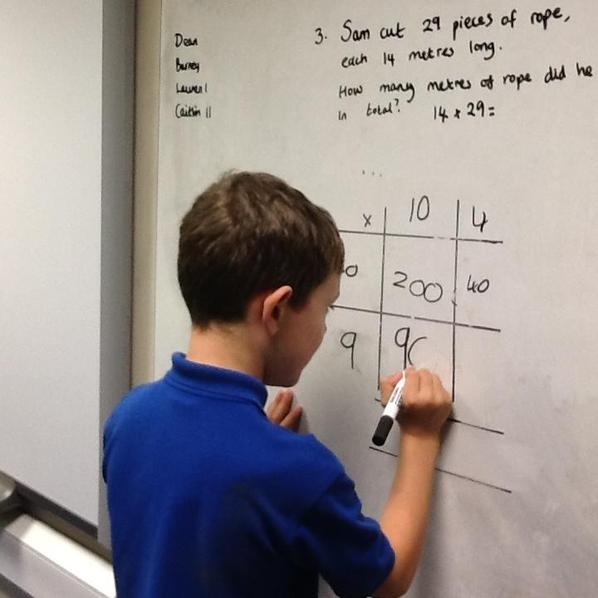 Dean
Barney
Lauren I
Caitlin II
3. Sam cut 29 pieces of rope,
each 14 metres long.
How many metres of rope did he
in total? 14 x 29 =
...
x 10 4
0 200 40
9 9